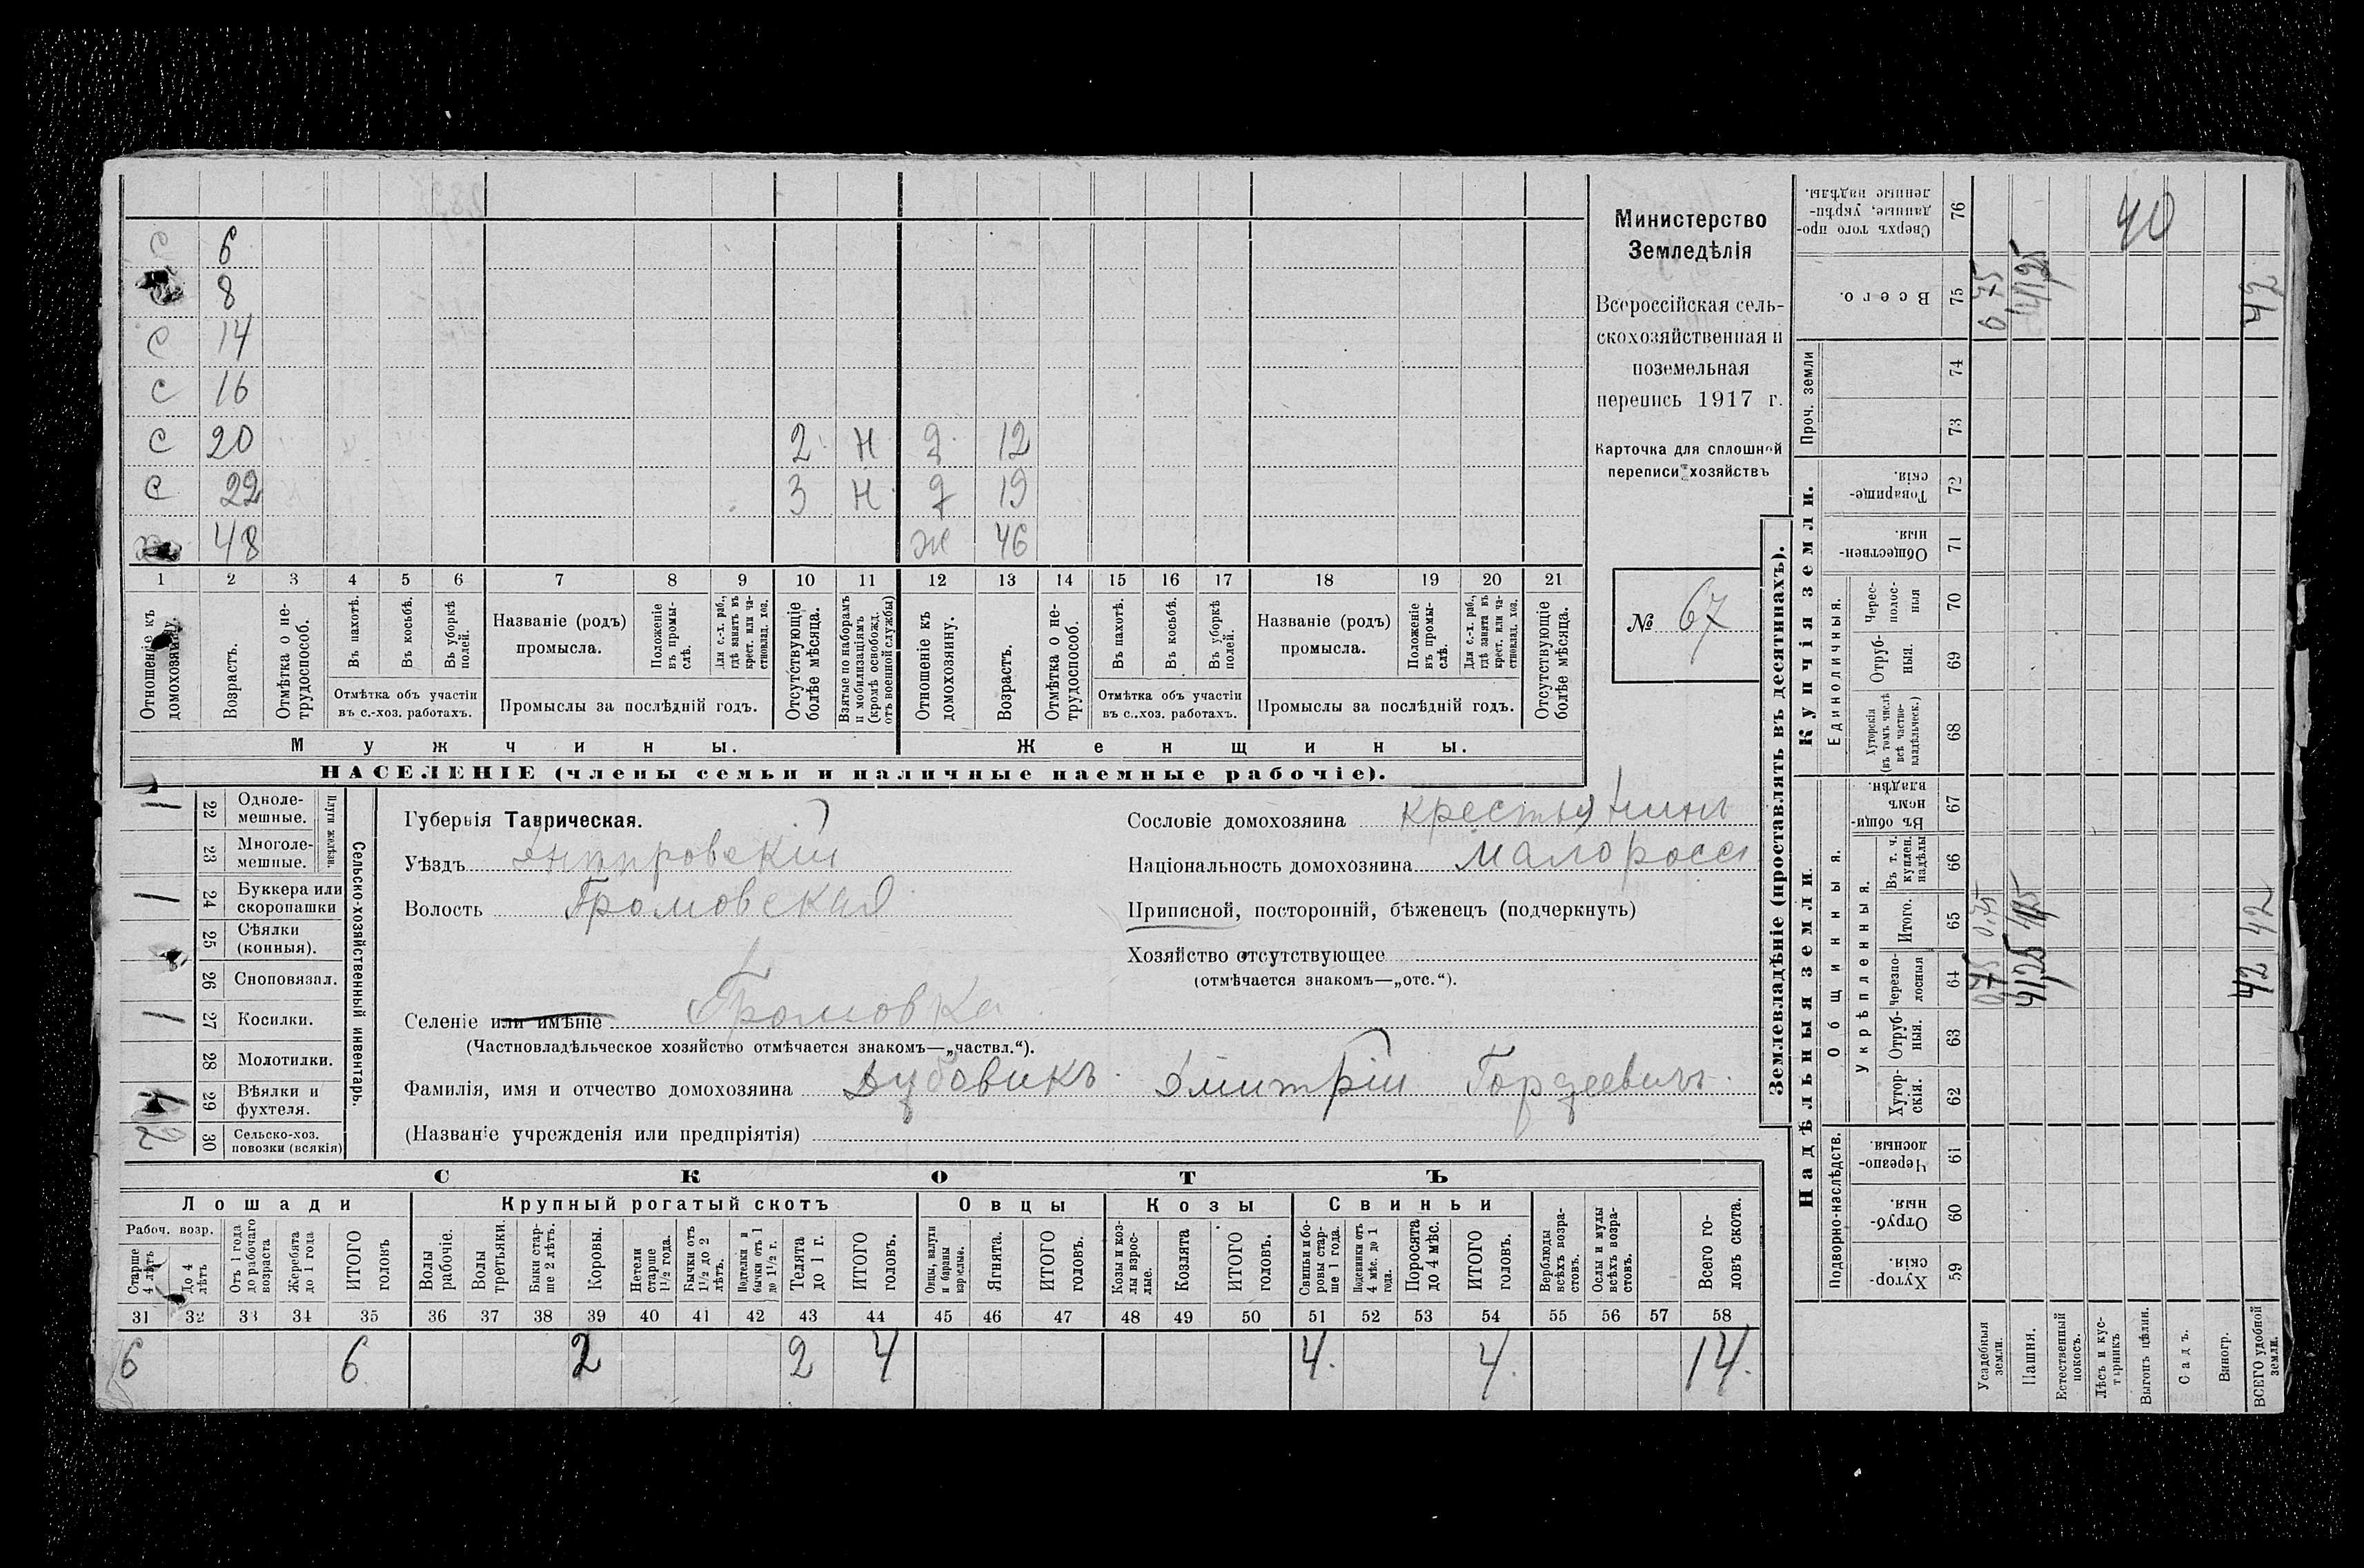 с 6
8
с 14
с 16
с 20 2 н д 12
с 22 3 н д 19
48 ж 46
1 2 3 4 5 6 7 8 9 10 11 12 13 14 15 16 17 18 19 20 21
Отношеніе къ домохозяину.
Возрастъ.
Отмѣтка о нетрудоспособ.
Въ пахотѣ.
Въ косьбѣ.
Въ уборкѣ полей.
Отмѣтка объ участіи
въ с.-хоз. работахъ.
Названіе (родъ)
промысла.
Положеніе въ промыслѣ.
Для с.-х. раб., гдѣ занятъ въ крест. или частновлад. хоз.
Промыслы за послѣдній годъ.
Отсутствующіе болѣе мѣсяца.
Взятые по наборамъ и мобилизаціямъ (кромѣ освобожд. отъ военной службы)
Отношеніе къ домохозяину.
Возрастъ.
Отмѣтка о нетрудоспособ.
Въ пахотѣ.
Въ косьбѣ.
Въ уборкѣ полей.
Отмѣтка объ участіи
въ с.-хоз. работахъ.
Названіе (родъ)
промысла.
Положеніе въ промыслѣ.
Для с.-х. раб., гдѣ занята въ крест. или частновлад. хоз.
Промыслы за послѣдній годъ.
Отсутствующіе болѣе мѣсяца.
Мужчины.
Женщины.
НАСЕЛЕНІЕ (члены семьи и наличные наемные рабочіе).
Министерство
Земледѣлія
Всероссійская сель-
скохозяйственная и
поземельная
перепись 1917 г.
Карточка для сплошной
переписи хозяйствъ
№ 67
Сельско-хозяйственный инвентарь.
Плуги желѣзн.
1 22 Одноле-
мешные.
23 Многоле-
мешные.
1 24 Буккера или
скоропашки
25 Сѣялки
(конныя).
26 Сноповязал.
1 27 Косилки.
28 Молотилки.
29 Вѣялки и
фухтеля.
2 30 Сельско-хоз.
повозки (всякія)
Губернія Таврическая.
Уѣздъ Днѣпровскій
Волость Громовская
Сословіе домохозяина крестьянинъ
Національность домохозяина малоросс
Приписной, посторонній, бѣженецъ (подчеркнуть)
Хозяйство отсутствующее
(отмѣчается знакомъ—„отс.“).
Селеніе или имѣніе Громовка
(Частновладѣльческое хозяйство отмѣчается знакомъ—„частвл.“).
Фамилія, имя и отчество домохозяина Дубовикъ Дмитрій Гордеевичъ.
(Названіе учрежденія или предпріятія)
СКОТЪ
Лошади Крупный рогатый скотъ Овцы Козы Свиньи
Рабоч. возр.
Старше 4 лѣтъ
До 4 лѣтъ
Отъ 1 года до рабочаго возраста
Жеребята до 1 года
ИТОГО головъ
Волы рабочіе.
Волы третьяки.
Быки старше 2 лѣтъ.
Коровы.
Нетели старше 1 1/2 года.
Бычки отъ 1 1/2 до 2 лѣтъ.
Подтелки и бычки отъ 1 до 1 1/2 г.
Телята до 1 г.
ИТОГО головъ.
Овцы, валухи и бараны взрослые.
Ягнята.
ИТОГО головъ.
Козы и козлы взрослые.
Козлята
ИТОГО головъ.
Свиньи и боровы старше 1 года.
Подсвинки отъ 4 мѣс. до 1 года.
Поросята до 4 мѣс.
ИТОГО головъ.
Верблюды всѣхъ возрастовъ.
Ослы и мулы всѣхъ возрастовъ.
Всего головъ скота.
31 32 33 34 35 36 37 38 39 40 41 42 43 44 45 46 47 48 49 50 51 52 53 54 55 56 57 58
6 6 2 2 4 4. 4. 14.
Землевладѣніе (проставлять въ десятинахъ).
Купчія земли.
Надѣльныя земли.
Сверхъ того проданные, укрѣпленные надѣлы. 76 40
Всего. 75 0,75 41,25 42
Проч. земли
74
73
Товарищескія. 72
Общественныя. 71
Единоличныя.
Чересполосныя 70
Отрубныя. 69
Хуторскія (въ томъ числѣ всѣ частновладѣльческ.) 68
Общинныя.
Въ общинномъ владѣн. 67
Укрѣпленныя.
Въ т. ч. куплен. надѣлы 66
Итого. 65 0,75 41,25 42
Черезполосныя 64 0,75 41,25 42
Отрубныя. 63
Хуторскія. 62
Подворно-наслѣдств.
Черезполосныя 61
Отрубныя. 60
Хуторскія. 59
Усадебныя земли.
Пашня.
Естественный покосъ.
Лѣсъ и кустарникъ
Выгонъ цѣлин.
Садъ.
Виногр.
ВСЕГО удобной земли.